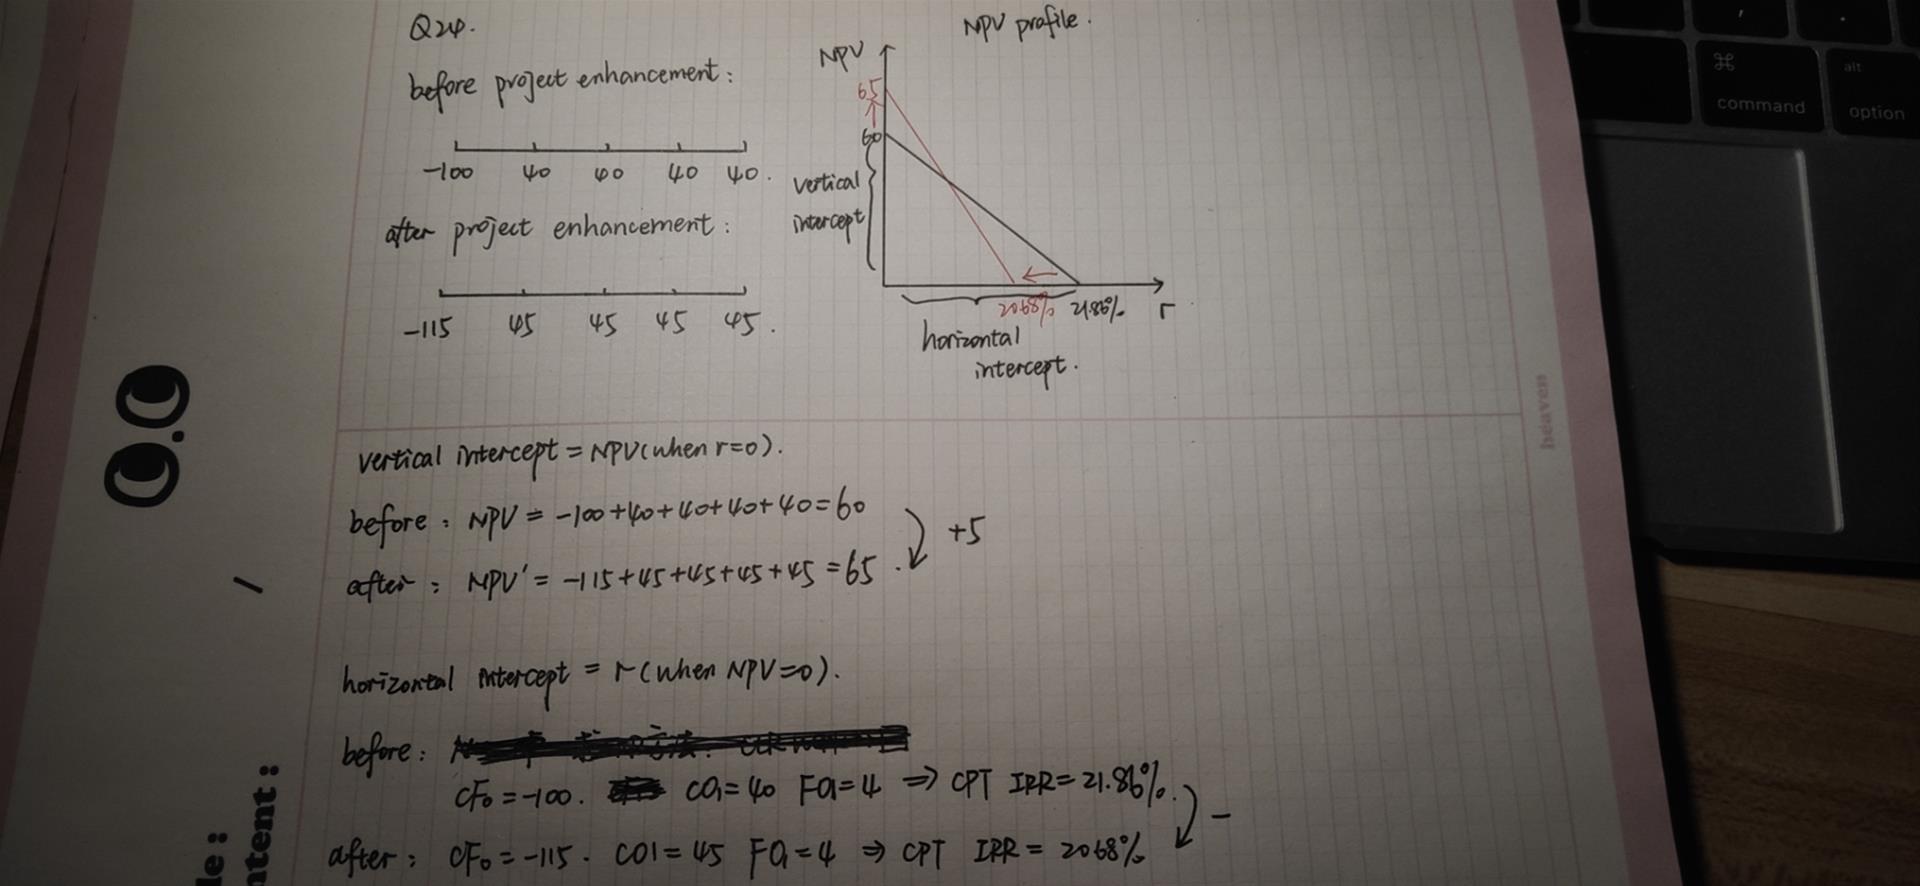 Q24.
before project enhancement:
-100 40 40 40 40.
after project enhancement:
-115 45 45 45 45.
NPV profile.
NPV
65
60
vertical
intercept
2068% 21.86% r
horizontal
intercept.
vertical intercept = NPV(when r=0).
before: NPV = -100+40+40+40+40=60
after: NPV' = -115+45+45+45+45=65.
+5
horizontal intercept = r(when NPV=0).
before:
CF₀=-100. C01=40 F01=4 ⇒ CPT IRR=21.86%.
after: CF₀=-115. C01=45 F01=4 ⇒ CPT IRR=2068%
-
O.O
/
le:
ntent:
heaven
⌘
command
alt
option